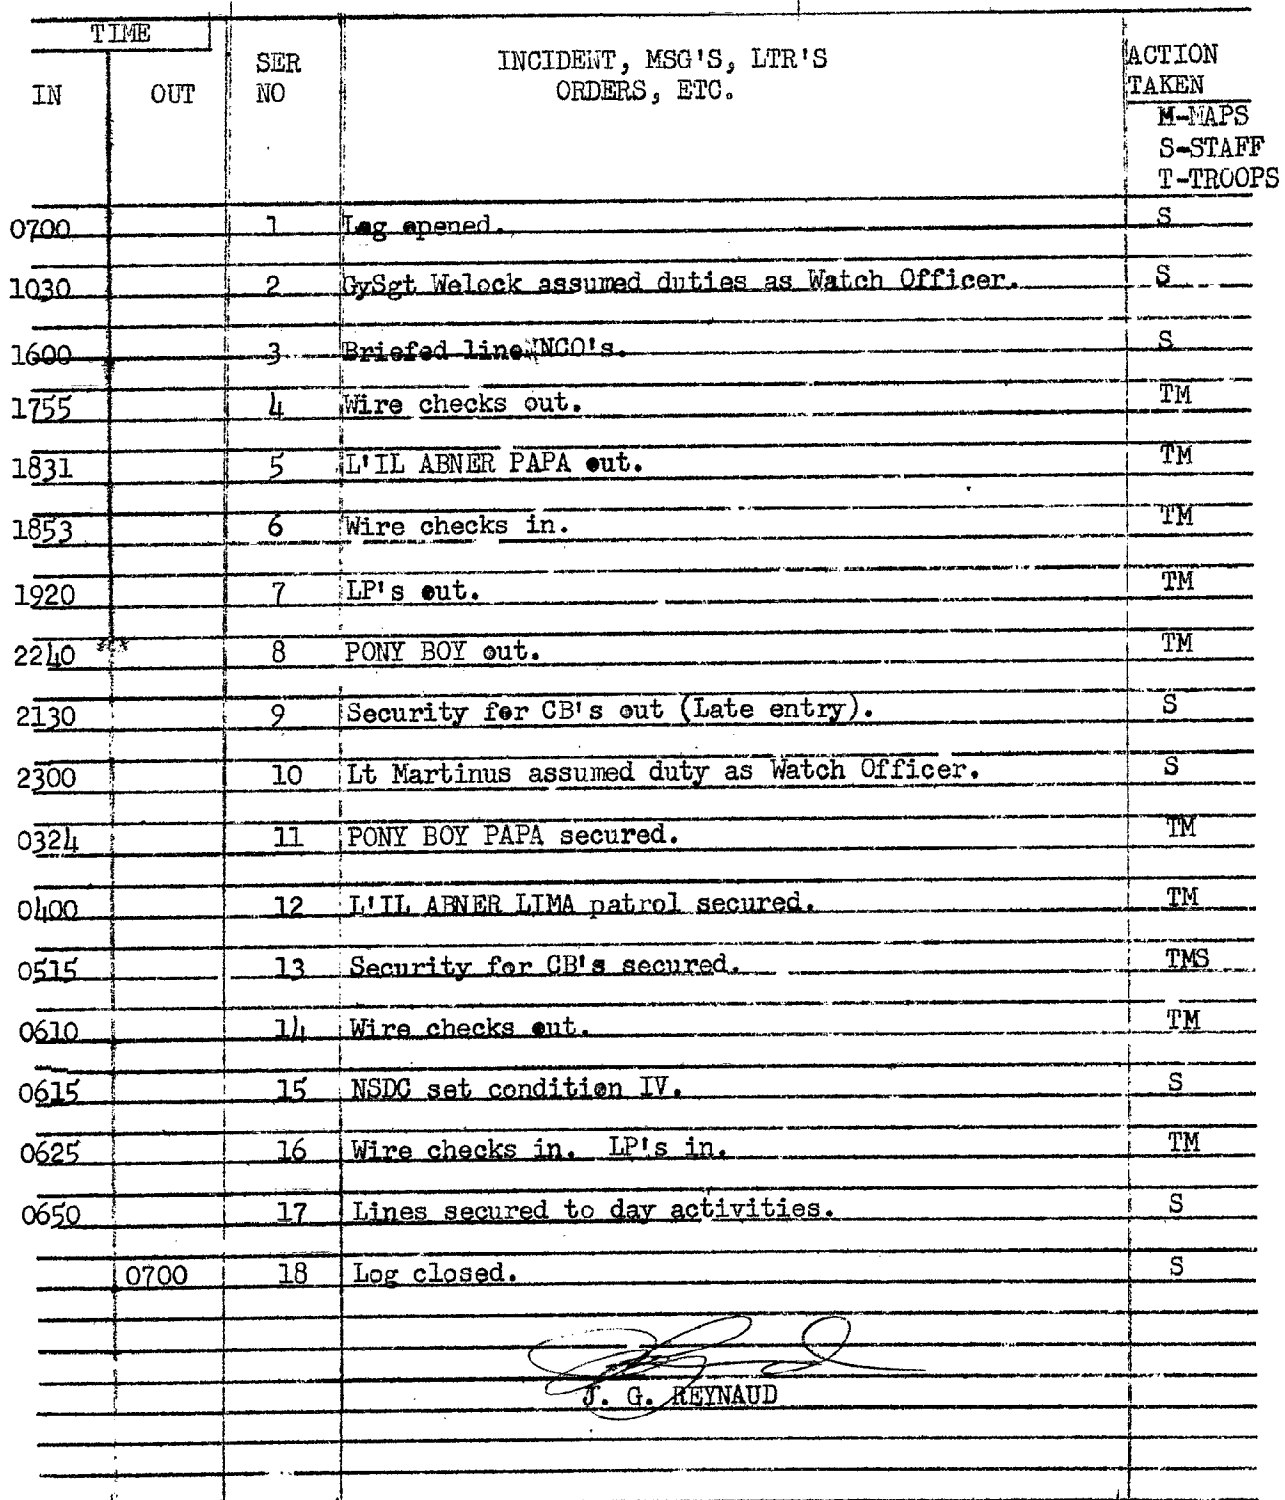 TIME
IN OUT SER NO INCIDENT, MSG'S, LTR'S ORDERS, ETC. ACTION TAKEN
M-MAPS
S-STAFF
T-TROOPS
0700 1 Log opened. S
1030 2 GySgt Welock assumed duties as Watch Officer. S
1600 3 Briefed line NCO's. S
1755 4 Wire checks out. TM
1831 5 L'IL ABNER PAPA out. TM
1853 6 Wire checks in. TM
1920 7 LP's out. TM
2240 8 PONY BOY out. TM
2130 9 Security for CB's out (Late entry). S
2300 10 Lt Martinus assumed duty as Watch Officer. S
0324 11 PONY BOY PAPA secured. TM
0400 12 L'IL ABNER LIMA patrol secured. TM
0515 13 Security for CB's secured. TMS
0610 14 Wire checks out. TM
0615 15 NSDC set condition IV. S
0625 16 Wire checks in. LP's in. TM
0650 17 Lines secured to day activities. S
0700 18 Log closed. S
J. G. REYNAUD